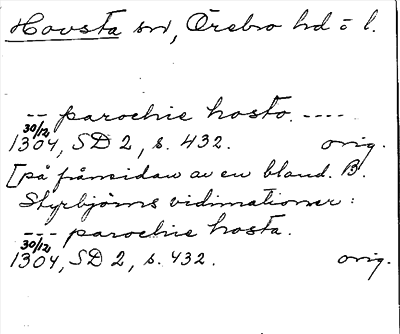 Hovsta sn, Örebro hd o l.
-- parochie hosto. ----
30/12 1304, SD 2, s. 432. orig.
[på framsidan av en bland. B.
Styrbjörns vidimationer:
--- parochie hosta.
30/12 1304, SD 2, s. 432. orig.